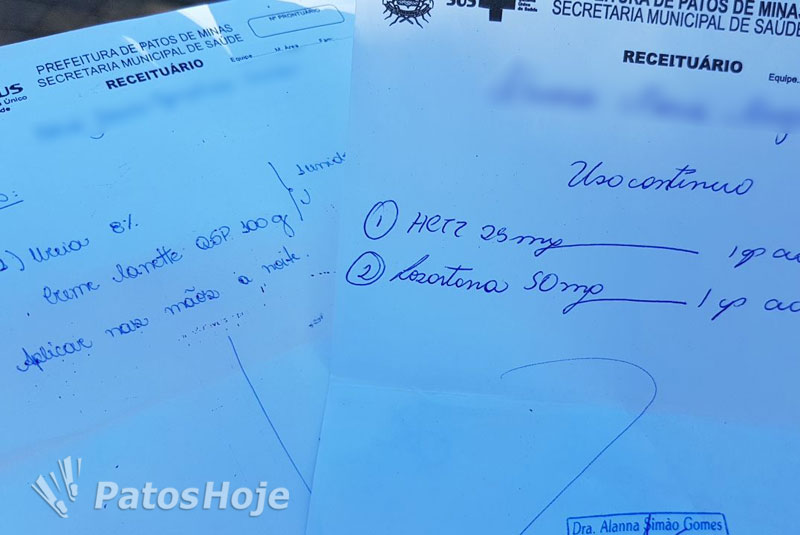 PREFEITURA DE PATOS DE MINAS
SECRETARIA MUNICIPAL DE SAÚDE
RECEITUÁRIO
Nº PRONTUÁRIO
Equipe M. Área Fam.
SUS
1) Ureia 8%
Creme Lanette QSP 100g
Aplicar nas mãos a noite.
DE PATOS DE MINAS
SECRETARIA MUNICIPAL DE SAÚDE
RECEITUÁRIO
Equipe
Uso contínuo
1 HCTZ 25mg 1 cp ao
2 Losartana 50mg 1 cp ao
Dra. Alanna Simão Gomes
PatosHoje